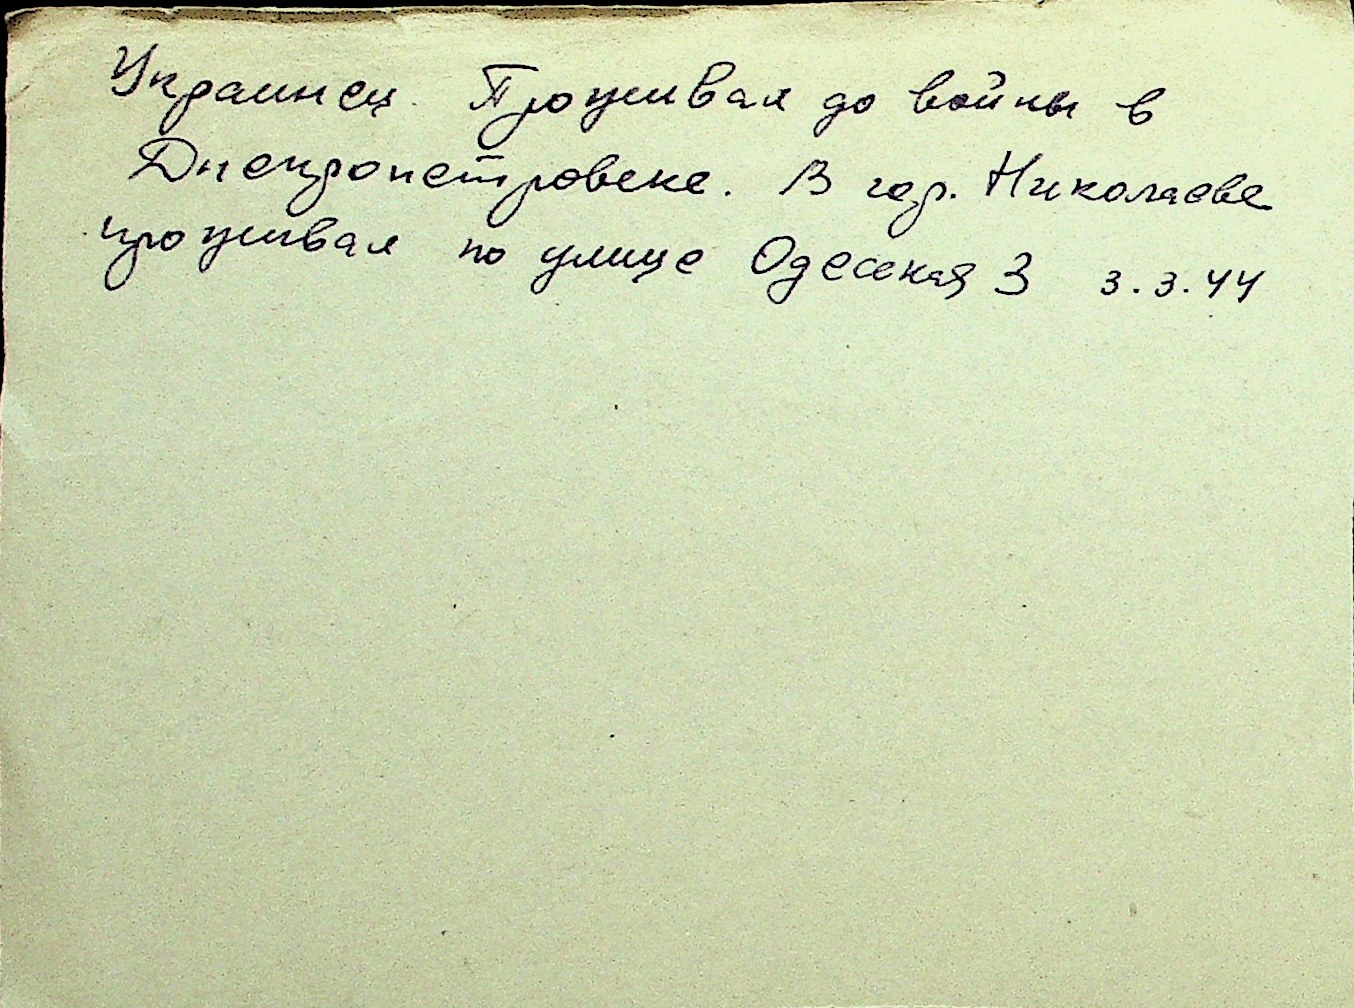 Украинец. Проживал до войны в
Днепропетровске. В гор. Николаеве
проживал по улице Одесская 3 3.3.44